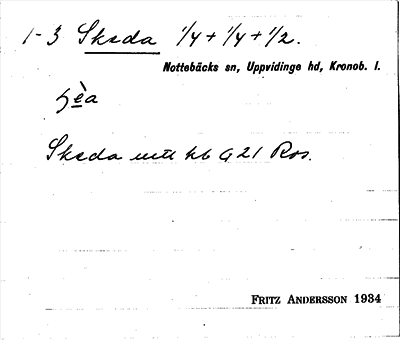 1-3 Skeda 1/4 + 1/4 + 1/2.
Nottebäcks sn, Uppvidinge hd, Kronob. l.
Skeda utr kb G 21 Ros.
FRITZ ANDERSSON 1934